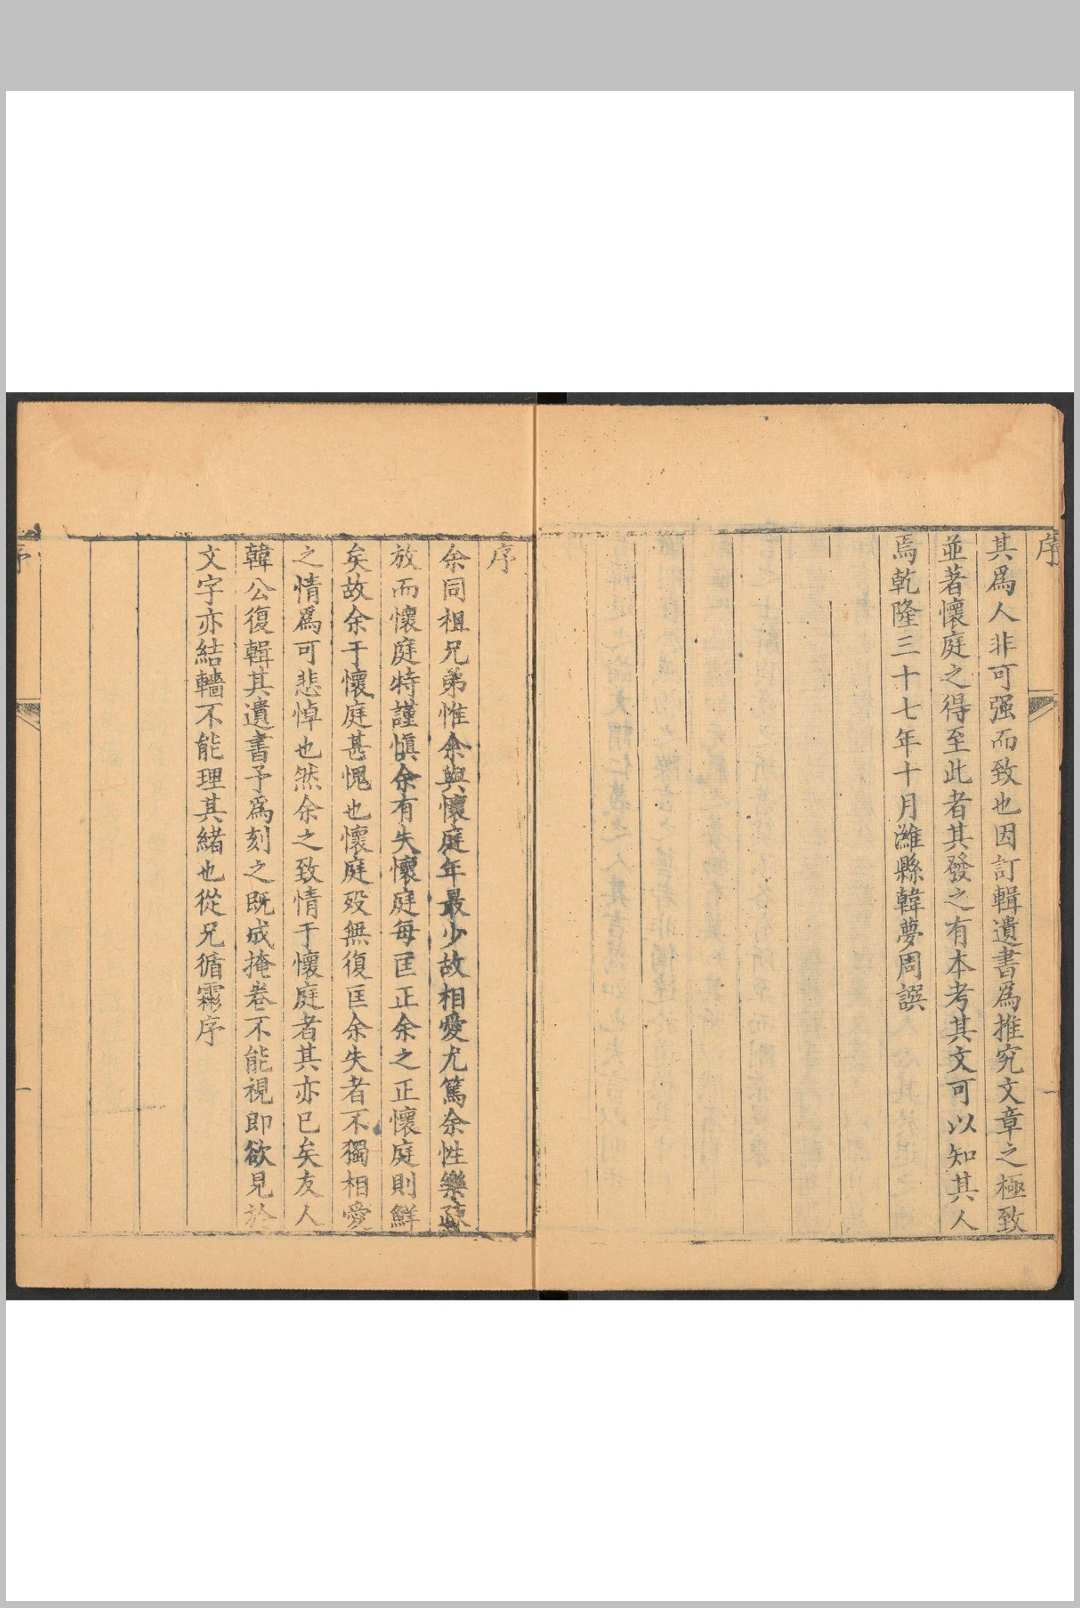 序
其爲人非可强而致也因訂輯遺書爲推究文章之極致
並著懷庭之得至此者其發之有本考其文可以知其人
焉乾隆三十七年十月濰縣韓夢周譔
序
余同祖兄弟惟余與懷庭年最少故相愛尤篤余性樂疎
放而懷庭特謹愼余有失懷庭每匡正余之正懷庭則鮮
矣故余于懷庭甚愧也懷庭歿無復匡余失者不獨相愛
之情爲可悲悼也然余之致情于懷庭者其亦已矣友人
韓公復輯其遺書予爲刻之既成掩卷不能視即欲見於
文字亦結轖不能理其緒也從兄循霦序
序
一